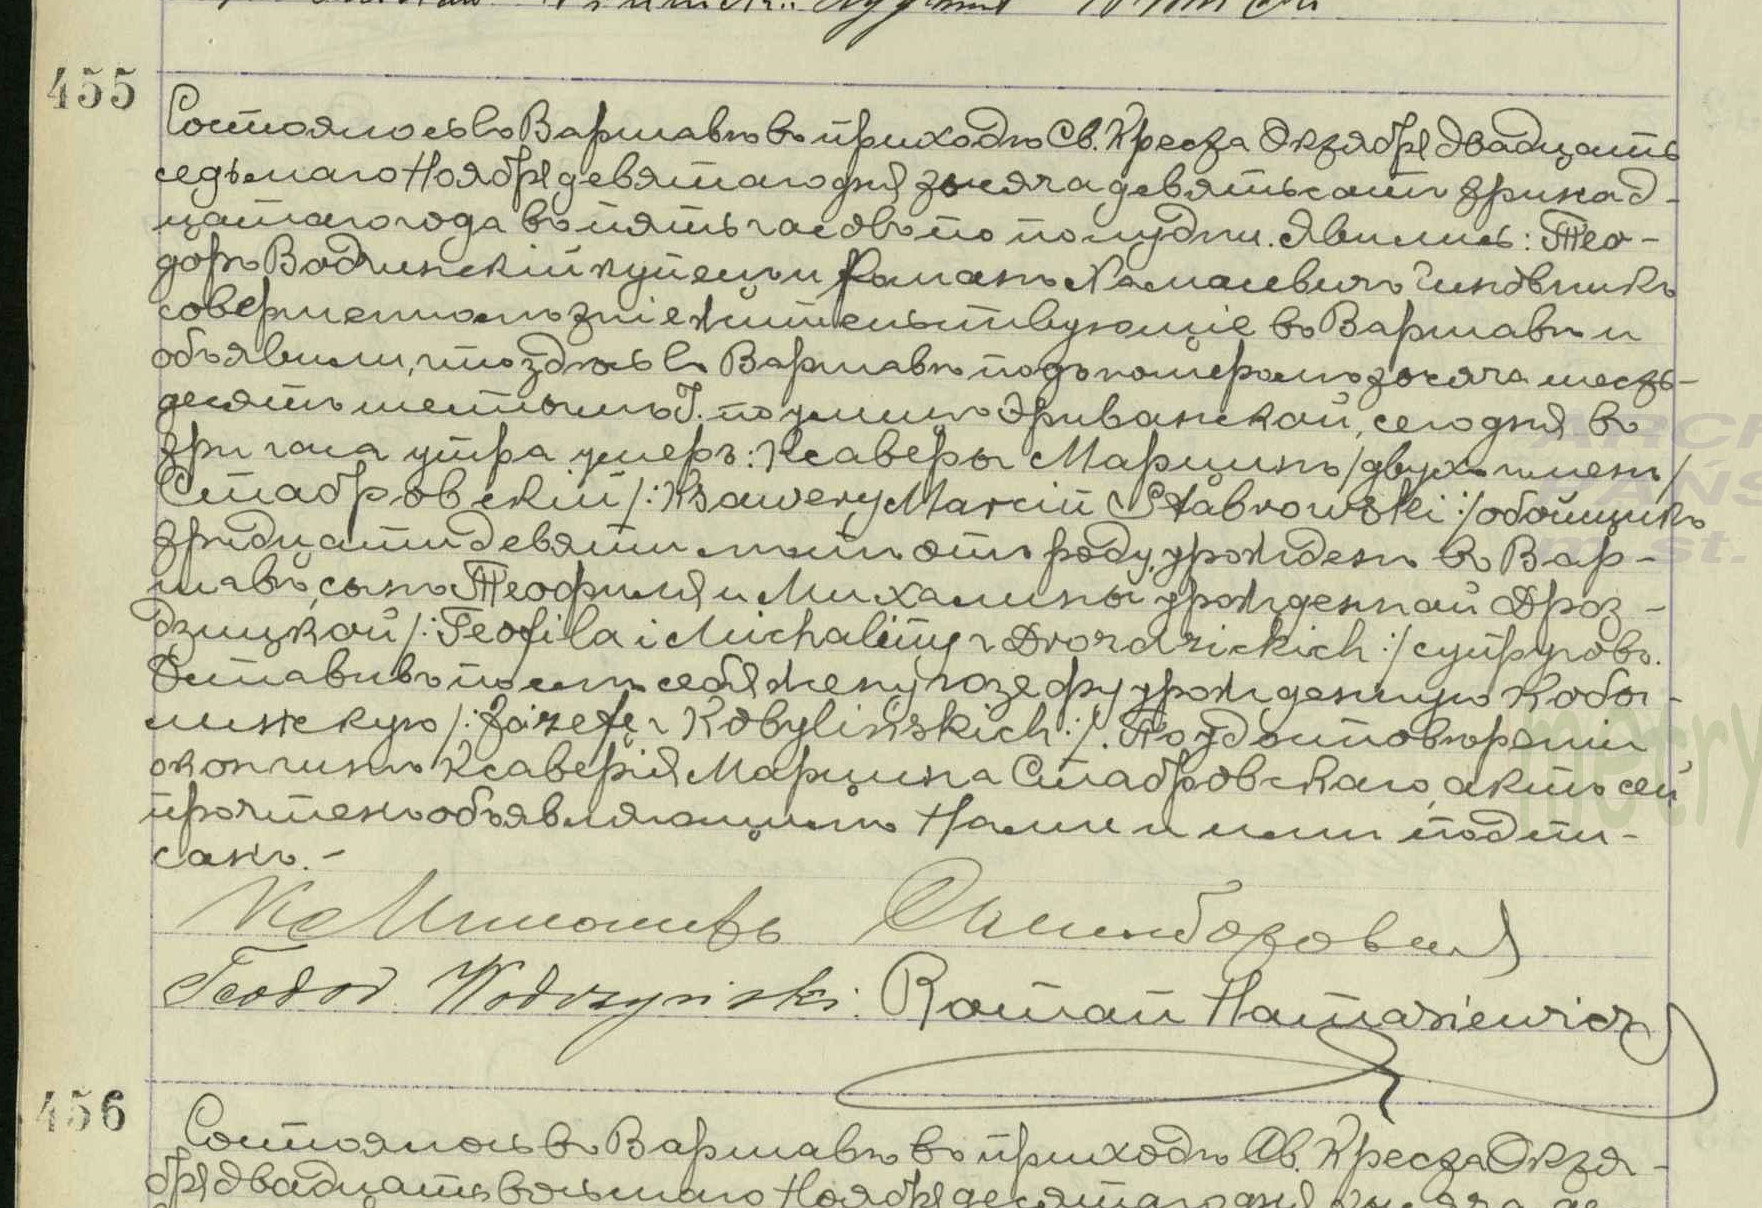 455
Состоялось въ Варшавѣ въ приходѣ Св. Креста Октября двадцать
седьмаго Ноября девятаго дня тысяча девятьсотъ тринад-
цатаго года въ пять часовъ по полудни. Явились: Тео-
доръ Водчинскій купецъ и Романъ Хамаслевичъ чиновникъ
совершеннолѣтніе жительствующіе въ Варшавѣ и
объявили, что здѣсь въ Варшавѣ подъ номеромъ тысяча шесть-
десять шестымъ Г. по улицѣ Эриванской, сегодня въ
три часа утра умеръ: Ксаверы Марцинъ /двухъ именъ/
Стабровскій /:Ksawery Marcin Stabrowski:/ обойщикъ
тридцати девяти лѣтъ отъ роду, урожденъ въ Вар-
шавѣ, сынъ Теофиля и Михалины урожденной Дроз-
дзицкой /:Teofila i Michaliny z Drozdzickich:/ супруговъ.
Оставивъ послѣ себя жену Юзефу урожденную Кобы-
линскую /:Józefę z Kobylińskich:/. По удостовѣреніи
о кончинѣ Ксаверія Марцина Стабровскаго, актъ сей
прочтенъ объявляющимъ Нами и ими подпи-
санъ.-
Teodor Wodczyński. Roman Hamasiewicz
456
Состоялось въ Варшавѣ въ приходѣ Св. Креста Октя-
бря двадцать восьмаго Ноября десятаго дня тысяча де-